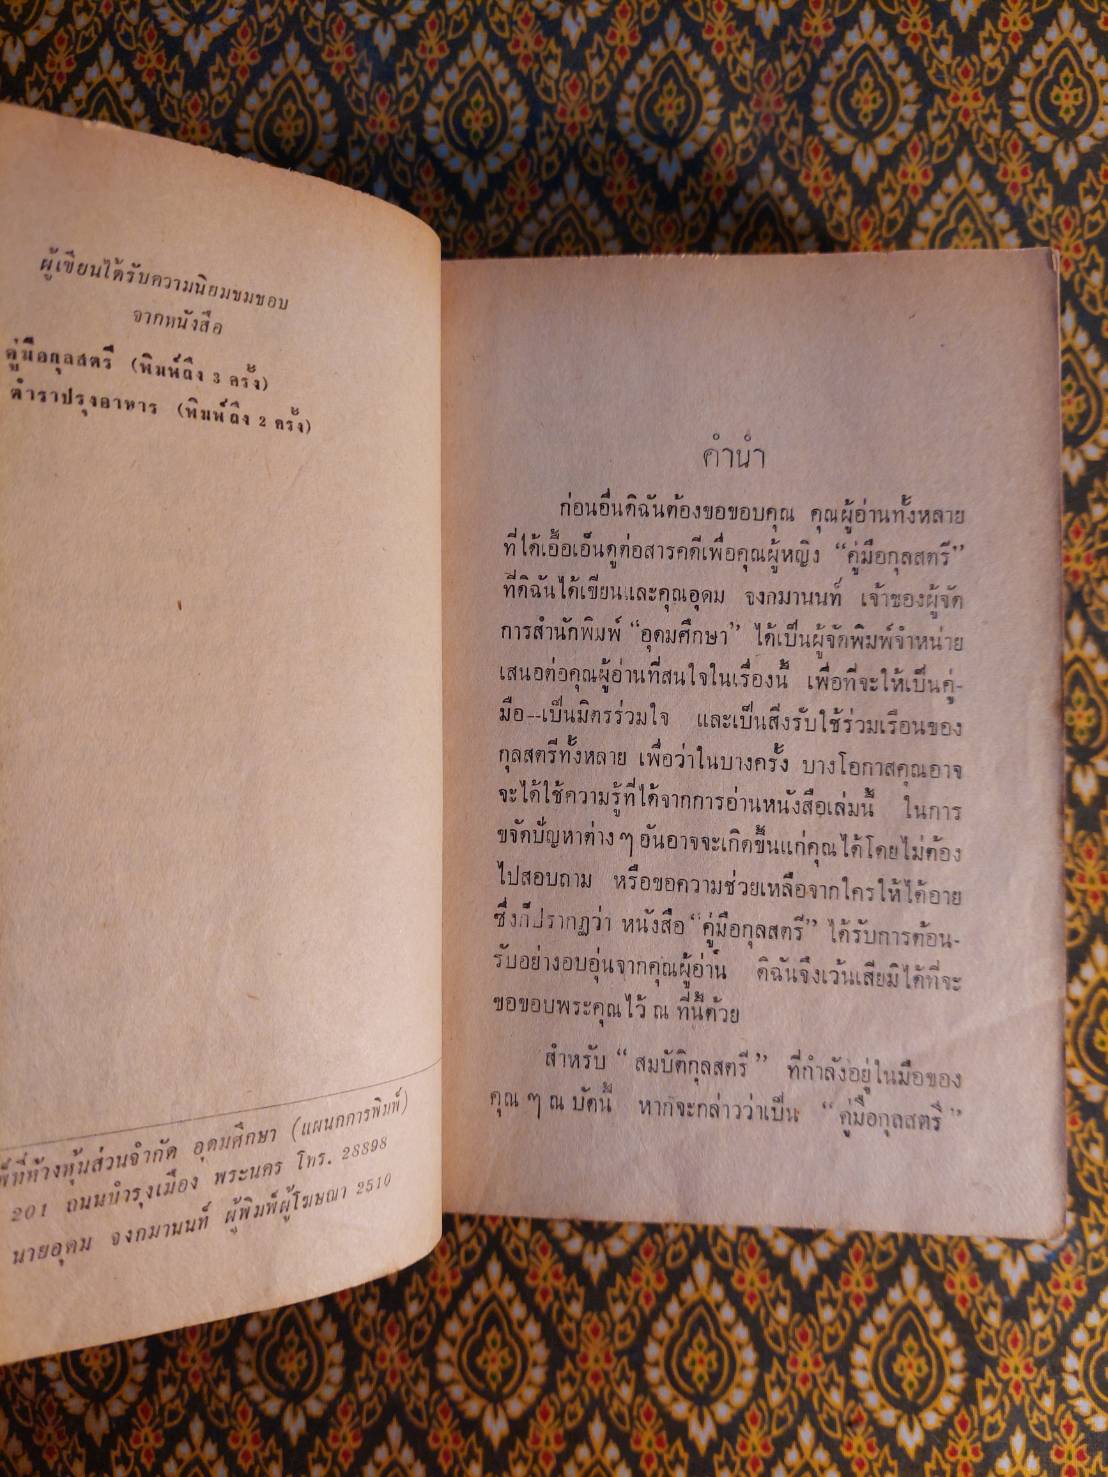 ผู้เขียนได้รับความนิยมชมชอบ
จากหนังสือ
คู่มือกุลสตรี (พิมพ์ถึง 3 ครั้ง)
ตำราปรุงอาหาร (พิมพ์ถึง 2 ครั้ง)
ที่ห้างหุ้นส่วนจำกัด อุดมศึกษา (แผนกการพิมพ์)
201 ถนนบำรุงเมือง พระนคร โทร. 28898
นายอุดม จงกมานนท์ ผู้พิมพ์ผู้โฆษณา 2510
คำนำ
ก่อนอื่นดิฉันต้องขอขอบคุณ คุณผู้อ่านทั้งหลาย
ที่ได้เอื้อเอ็นดูต่อสารคดีเพื่อคุณผู้หญิง “คู่มือกุลสตรี”
ที่ดิฉันได้เขียนและคุณอุดม จงกมานนท์ เจ้าของผู้จัด
การสำนักพิมพ์ “อุดมศึกษา” ได้เป็นผู้จัดพิมพ์จำหน่าย
เสนอต่อคุณผู้อ่านที่สนใจในเรื่องนี้ เพื่อที่จะให้เป็นคู่-
มือ--เป็นมิตรร่วมใจ และเป็นสิ่งรับใช้ร่วมเรือนของ
กุลสตรีทั้งหลาย เพื่อว่าในบางครั้ง บางโอกาสคุณอาจ
จะได้ใช้ความรู้ที่ได้จากการอ่านหนังสือเล่มนี้ ในการ
ขจัดปัญหาต่าง ๆ อันอาจจะเกิดขึ้นแก่คุณได้โดยไม่ต้อง
ไปสอบถาม หรือขอความช่วยเหลือจากใครให้ได้อาย
ซึ่งก็ปรากฏว่า หนังสือ “คู่มือกุลสตรี” ได้รับการต้อน-
รับอย่างอบอุ่นจากคุณผู้อ่าน ดิฉันจึงเว้นเสียมิได้ที่จะ
ขอขอบพระคุณไว้ ณ ที่นี้ด้วย
สำหรับ “ สมบัติกุลสตรี ” ที่กำลังอยู่ในมือของ
คุณ ๆ ณ บัดนี้ หากจะกล่าวว่าเป็น “คู่มือกุลสตรี”